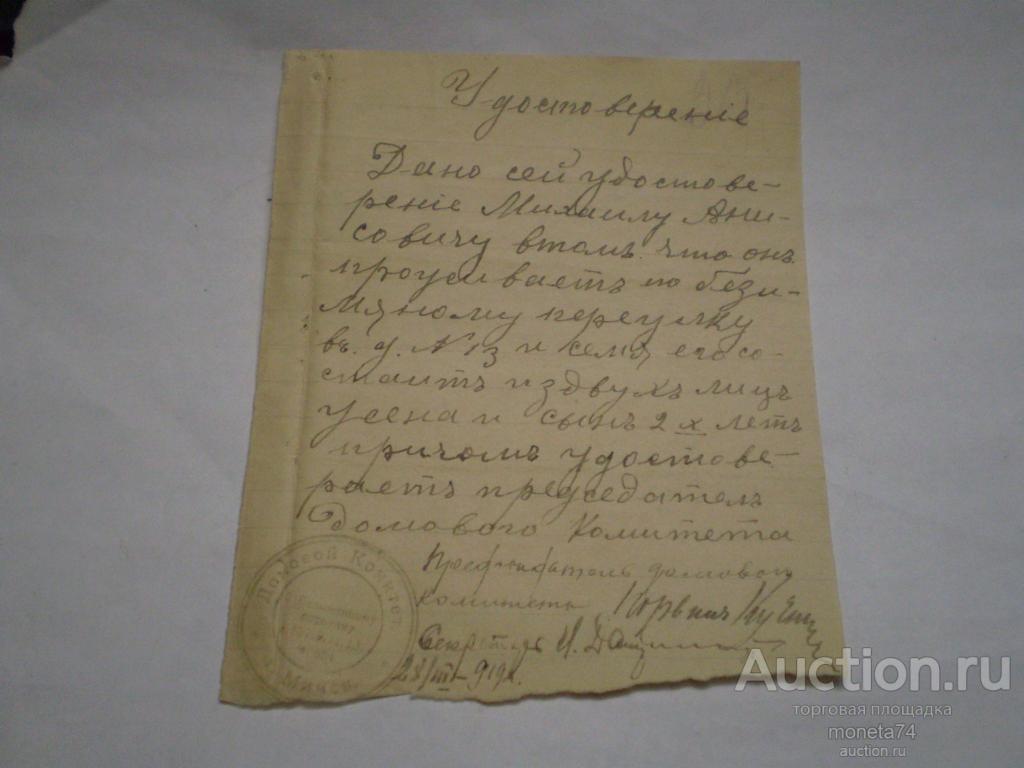 Удостоверенiе
Дано сей удостове-
ренiе Михаилу Ани-
совичу втомъ что онъ
проживаетъ по бези-
мяному переулку
въ д. N 13 и семя его со-
стаитъ издвухъ лицъ
жена и сынъ 2х летъ
причомъ удостове-
раетъ председатель
домового Комитета
Председатель домового
Комитета
Секретарь И.
28/III 919 г.
Домовой Комитет
Минск
Auction.ru
торговая площадка
moneta74
auction.ru